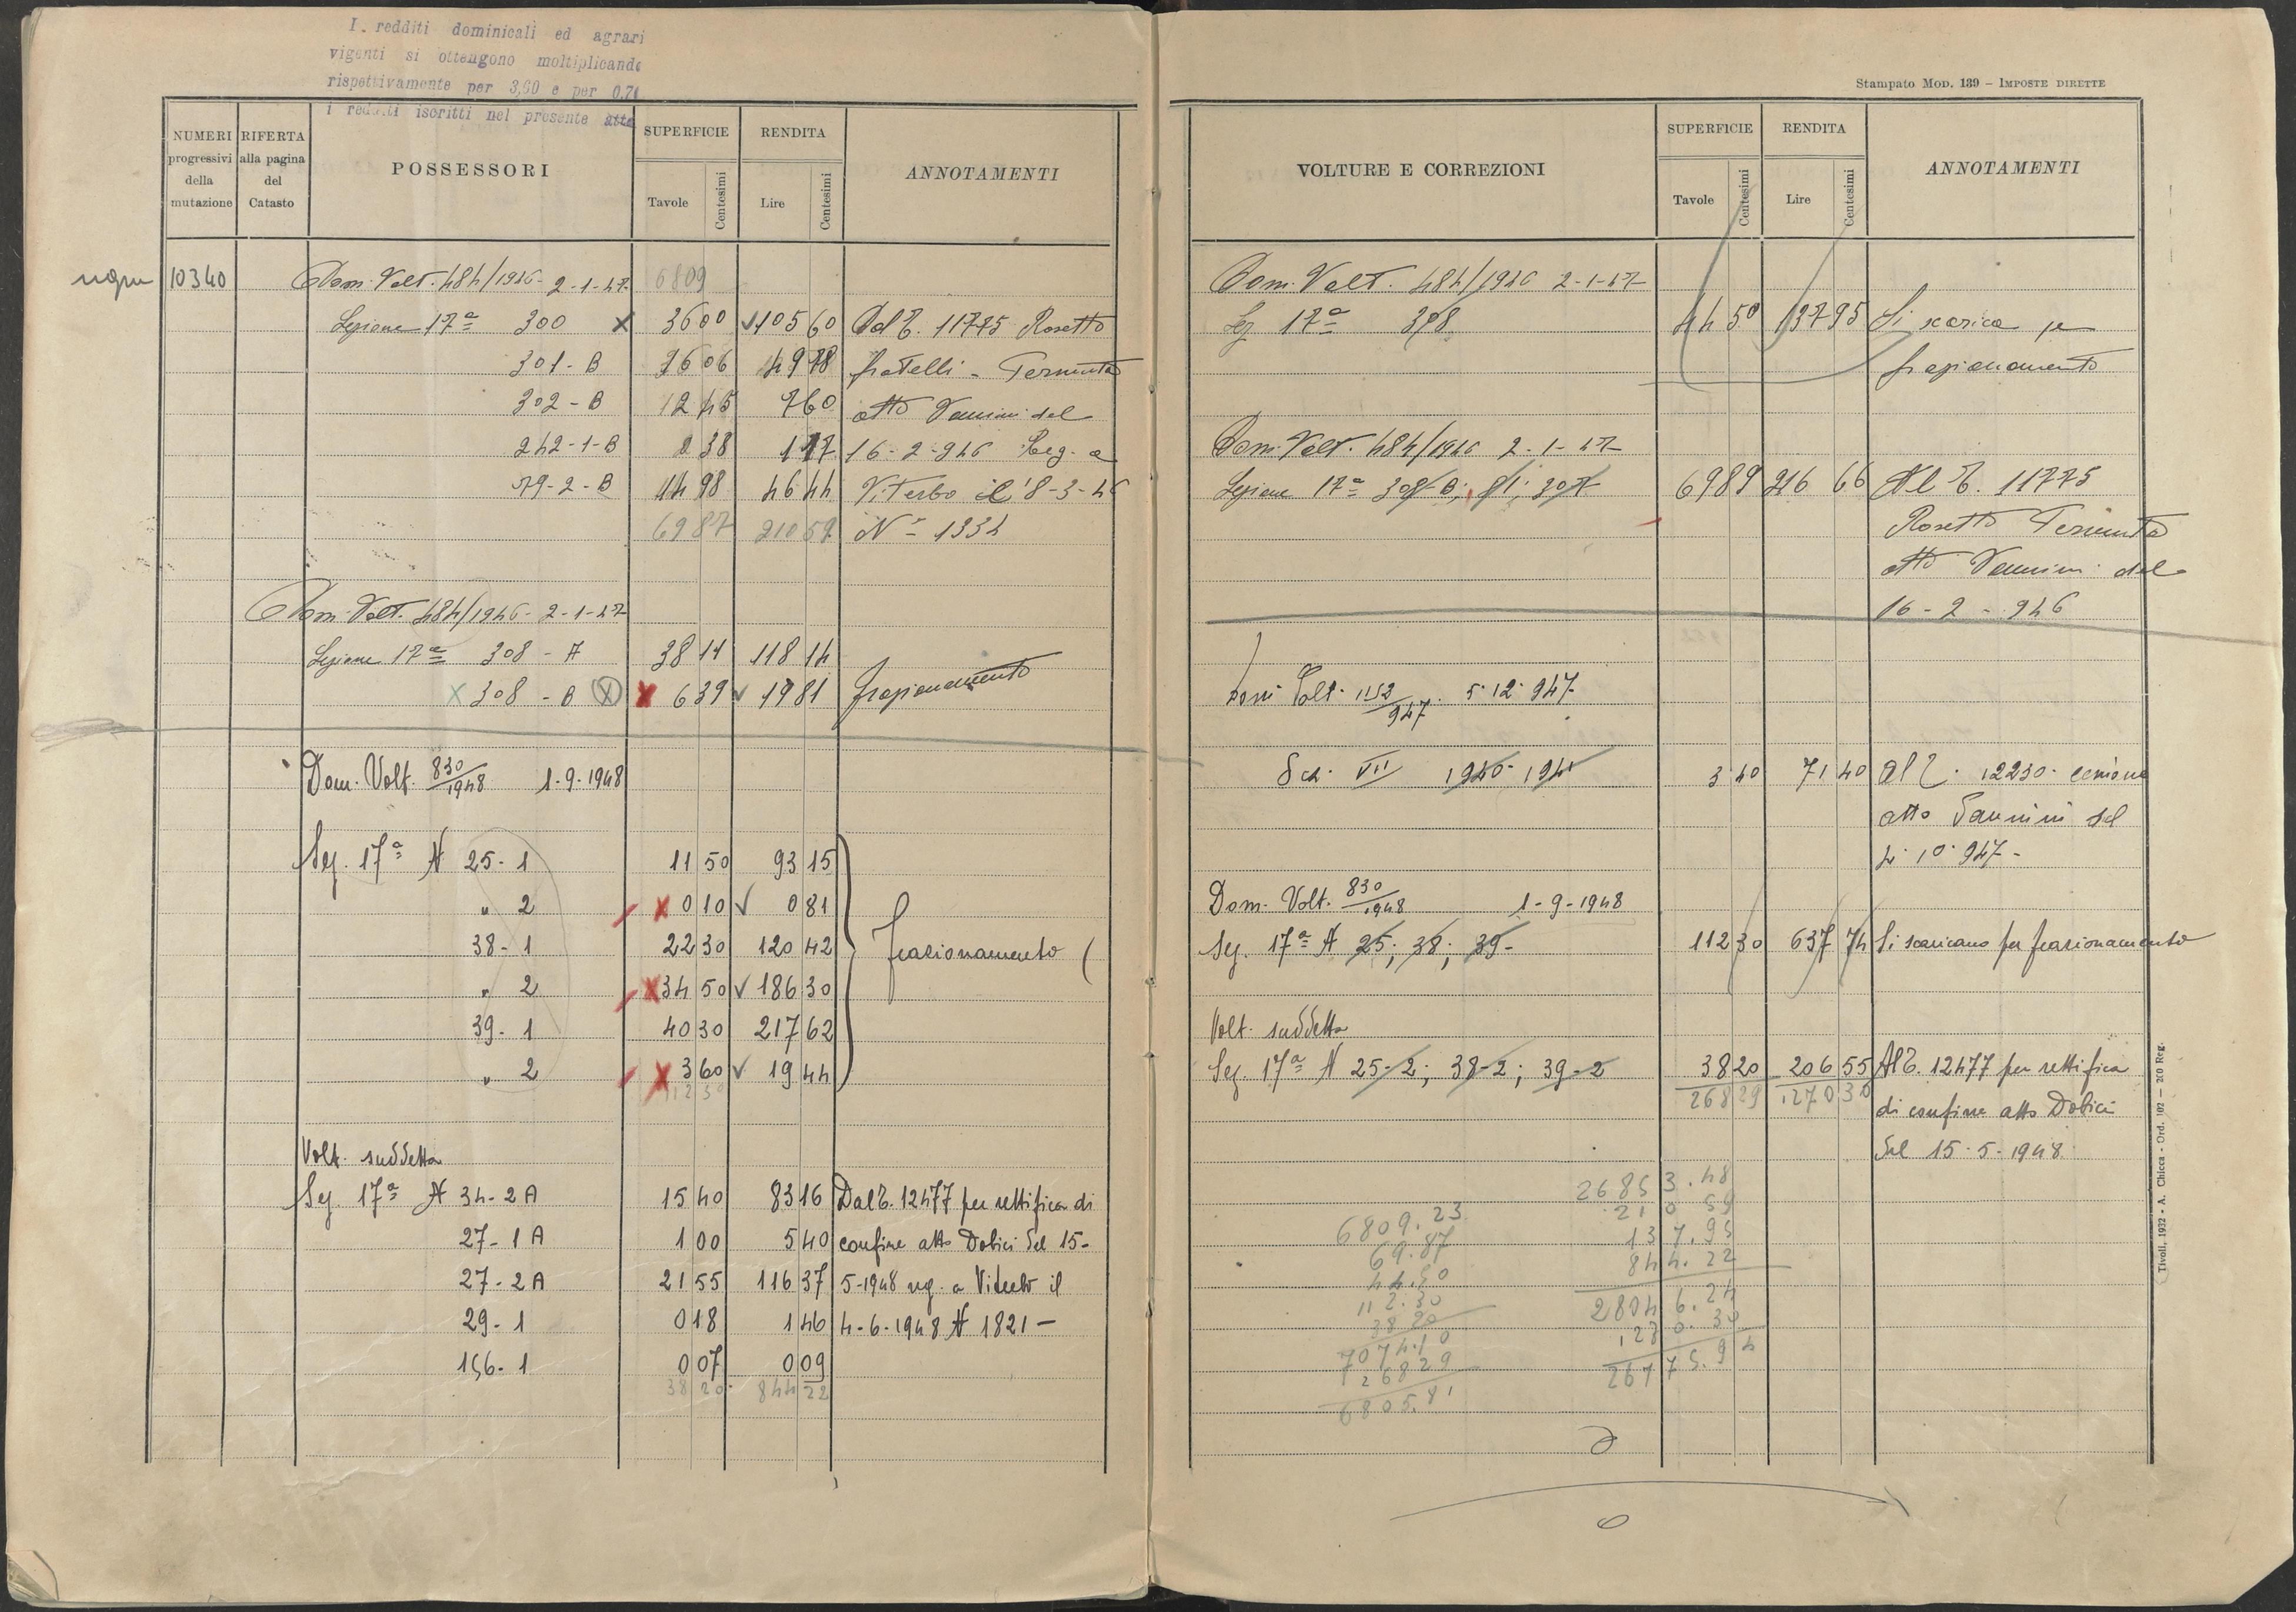 I. redditi dominicali ed agrari
vigenti si ottengono moltiplicando
rispettivamente per 3,60 e per 0,7
i redditi iscritti nel presente atto
NUMERI progressivi della mutazione
RIFERTA alla pagina del Catasto
POSSESSORI
SUPERFICIE Tavole Centesimi
RENDITA Lire Centesimi
ANNOTAMENTI
10340 Dom. Volt. 484/1946 - 2-1-47 6809
Sezione 17ª 300 x 36 00 √105 60 Dal T. 11775 Rosetto
301-B 16 06 49 78 fratelli - Termuta
302-B 12 45 7 60 atto Vannini del
242-1-B 0 38 1 17 16-2-946 Reg. a
79-2-B 14 98 46 44 Viterbo il 8-3-46
69 87 210 59 N° 1334
Dom. Volt. 484/1946 - 2-1-47
Sezione 17ª 308-A 38 11 118 14
x 308-B x x 6 39 √ 19 81 frazionamento
Dom. Volt. 830/1948 1-9-1948
Sez. 17ª N 25-1 11 50 93 15
" 2 x 0 10 √ 0 81
38-1 22 30 120 42 frazionamento (
" 2 x 34 50 √ 186 30
39-1 40 30 217 62
" 2 x 3 60 √ 19 44
112 30
Volt. suddetta
Sez. 17ª N 34-2A 15 40 83 16 Dal T. 12477 per rettifica di
27-1A 1 00 5 40 confine atto Dobici del 15-
27-2A 21 55 116 37 5-1948 reg. a Viterbo il
29-1 0 18 1 46 4-6-1948 N 1821 -
156-1 0 07 0 09
38 20 844 22
Stampato MOD. 139 - IMPOSTE DIRETTE
VOLTURE E CORREZIONI
SUPERFICIE Tavole Centesimi
RENDITA Lire Centesimi
ANNOTAMENTI
Dom. Volt. 484/1946 2-1-47
Sez 17ª 308 44 50 137 95 Si scarica per
frazionamento
Dom. Volt. 484/1946 2-1-47
Sezione 17ª 308-B; 81; 307 69 89 216 66 Al T. 11775
Rosetto Termuta
atto Vannini del
16-2-946
Dom Volt. 1152/947. 5·12·947
Sez. VII 1940-1941 3 40 71 40 Al T. 12230
atto Vannini del
4·10·947-
Dom. Volt. 830/1948 1-9-1948
Sez. 17ª N 25; 38; 39- 112 30 637 74 Si scaricano per frazionamento
Volt. suddetta
Sez. 17ª N 25-2; 38-2; 39-2 38 20 206 55 Al T. 12477 per rettifica
268 29 1270 30 di confine atto Dobici
del 15-5-1948
26853.48
6809.23 210 59
69.87 137.95
44.50 844.22
112.30 28046.24
38 20 1270.30
7074.10 26775.94
268 29
6805.81
Tivoli, 1932 - A. Chicca - Ord. 102 - 200 Reg.